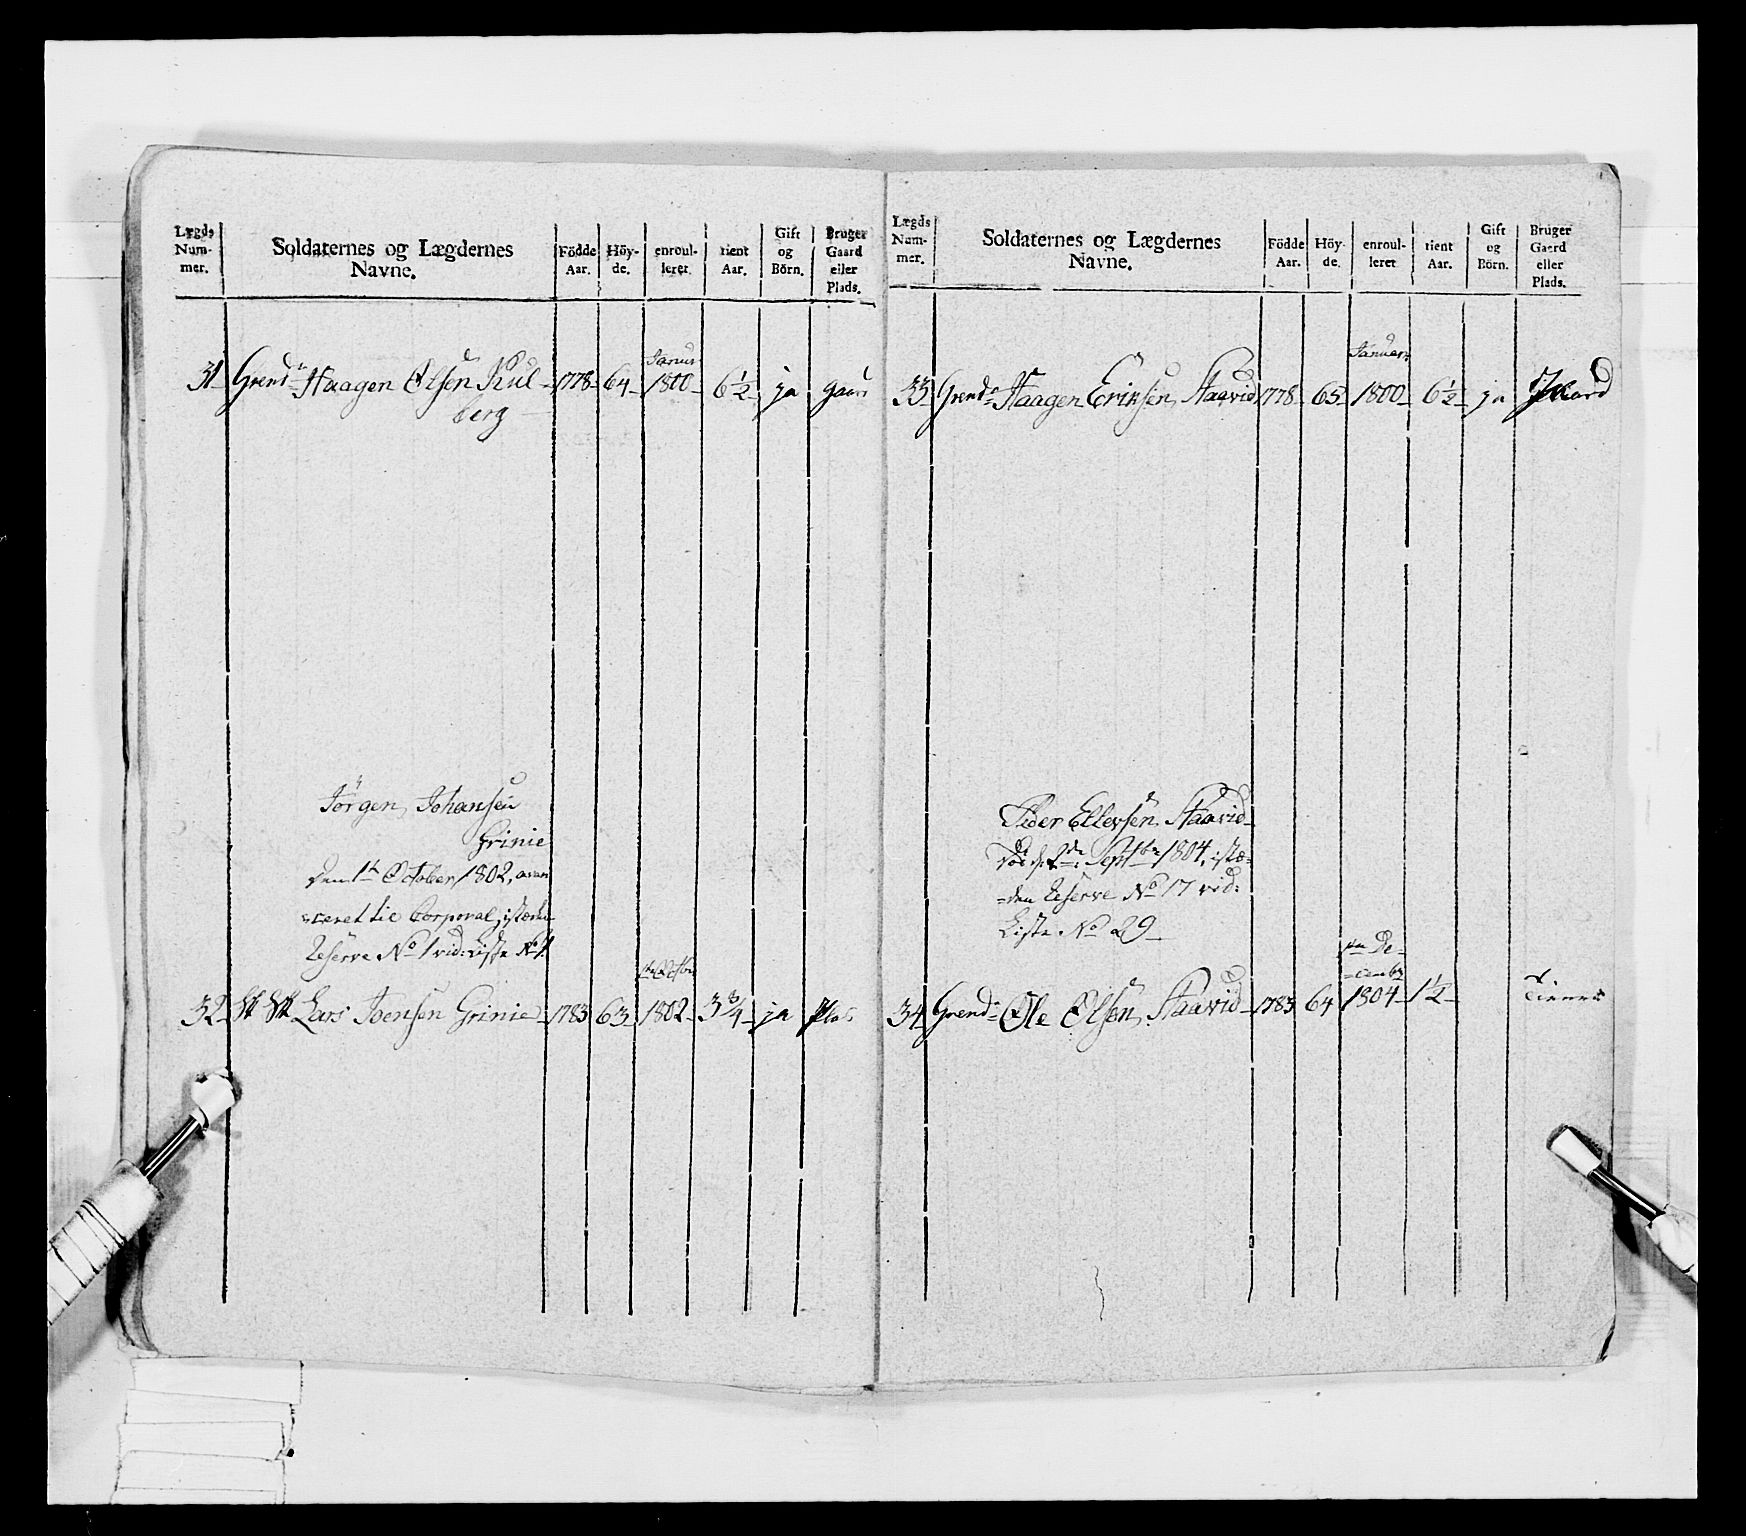 Lægds Num- mer.
Soldaternes og Lægdernes Navne.
Födde Aar.
Höy- de.
enroul- leret
tient Aar.
Gift og Börn.
Bruger Gaard eller Plads.
31 Grend: Haagen Olsen Kul- 1778 64 Januar 1800 6 1/2 ja gaard
berg
Jörgen Johansen
Grinie
den 1t October 1802, avan
ceret til Corporal, istæden
Reserve No 1 vid: Liste No 1
32 Lars Joensen Grinie 1783 63 1802 3 3/4 ja Plads
Lægds Num- mer.
Soldaternes og Lægdernes Navne.
Födde Aar.
Höy- de.
enroul- leret
tient Aar.
Gift og Börn.
Bruger Gaard eller Plads.
33 Grend: Haagen Erichsen Staavid 1778 65 Januar 1800 6 1/2 ja Gaard
Peder Ellevsen Staavid
Död d. 2de Septbr 1804, istæ-
den Reserve No 17 vid:
Liste No 29
34 Grend: Ole Olsen Staavid 1783 64 De- cembr 1804 1 1/2 tiener